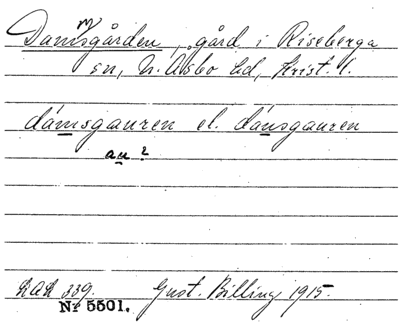 m
Damsgården, gård i Riseberga
sn, N. Åsbo hd, Krist. l.
dámsgauren el. dánsgauren
au?
LAL 339. Gust. Billing 1915.
Nr 5501.